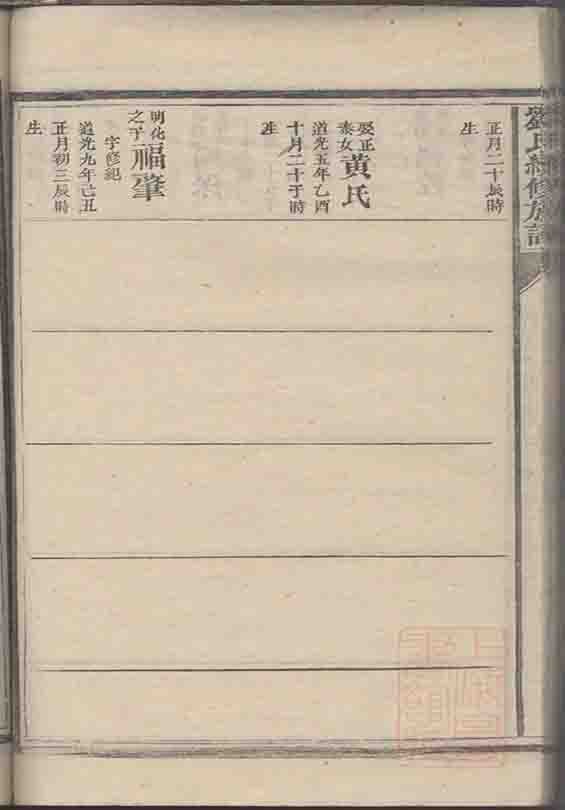 劉氏續修族譜
正月二十辰時
生
娶正
泰女
黃氏
道光五年乙酉
十月二十子時
生
明化
之子
福肇
字修紀
道光九年己丑
正月初三辰時
生